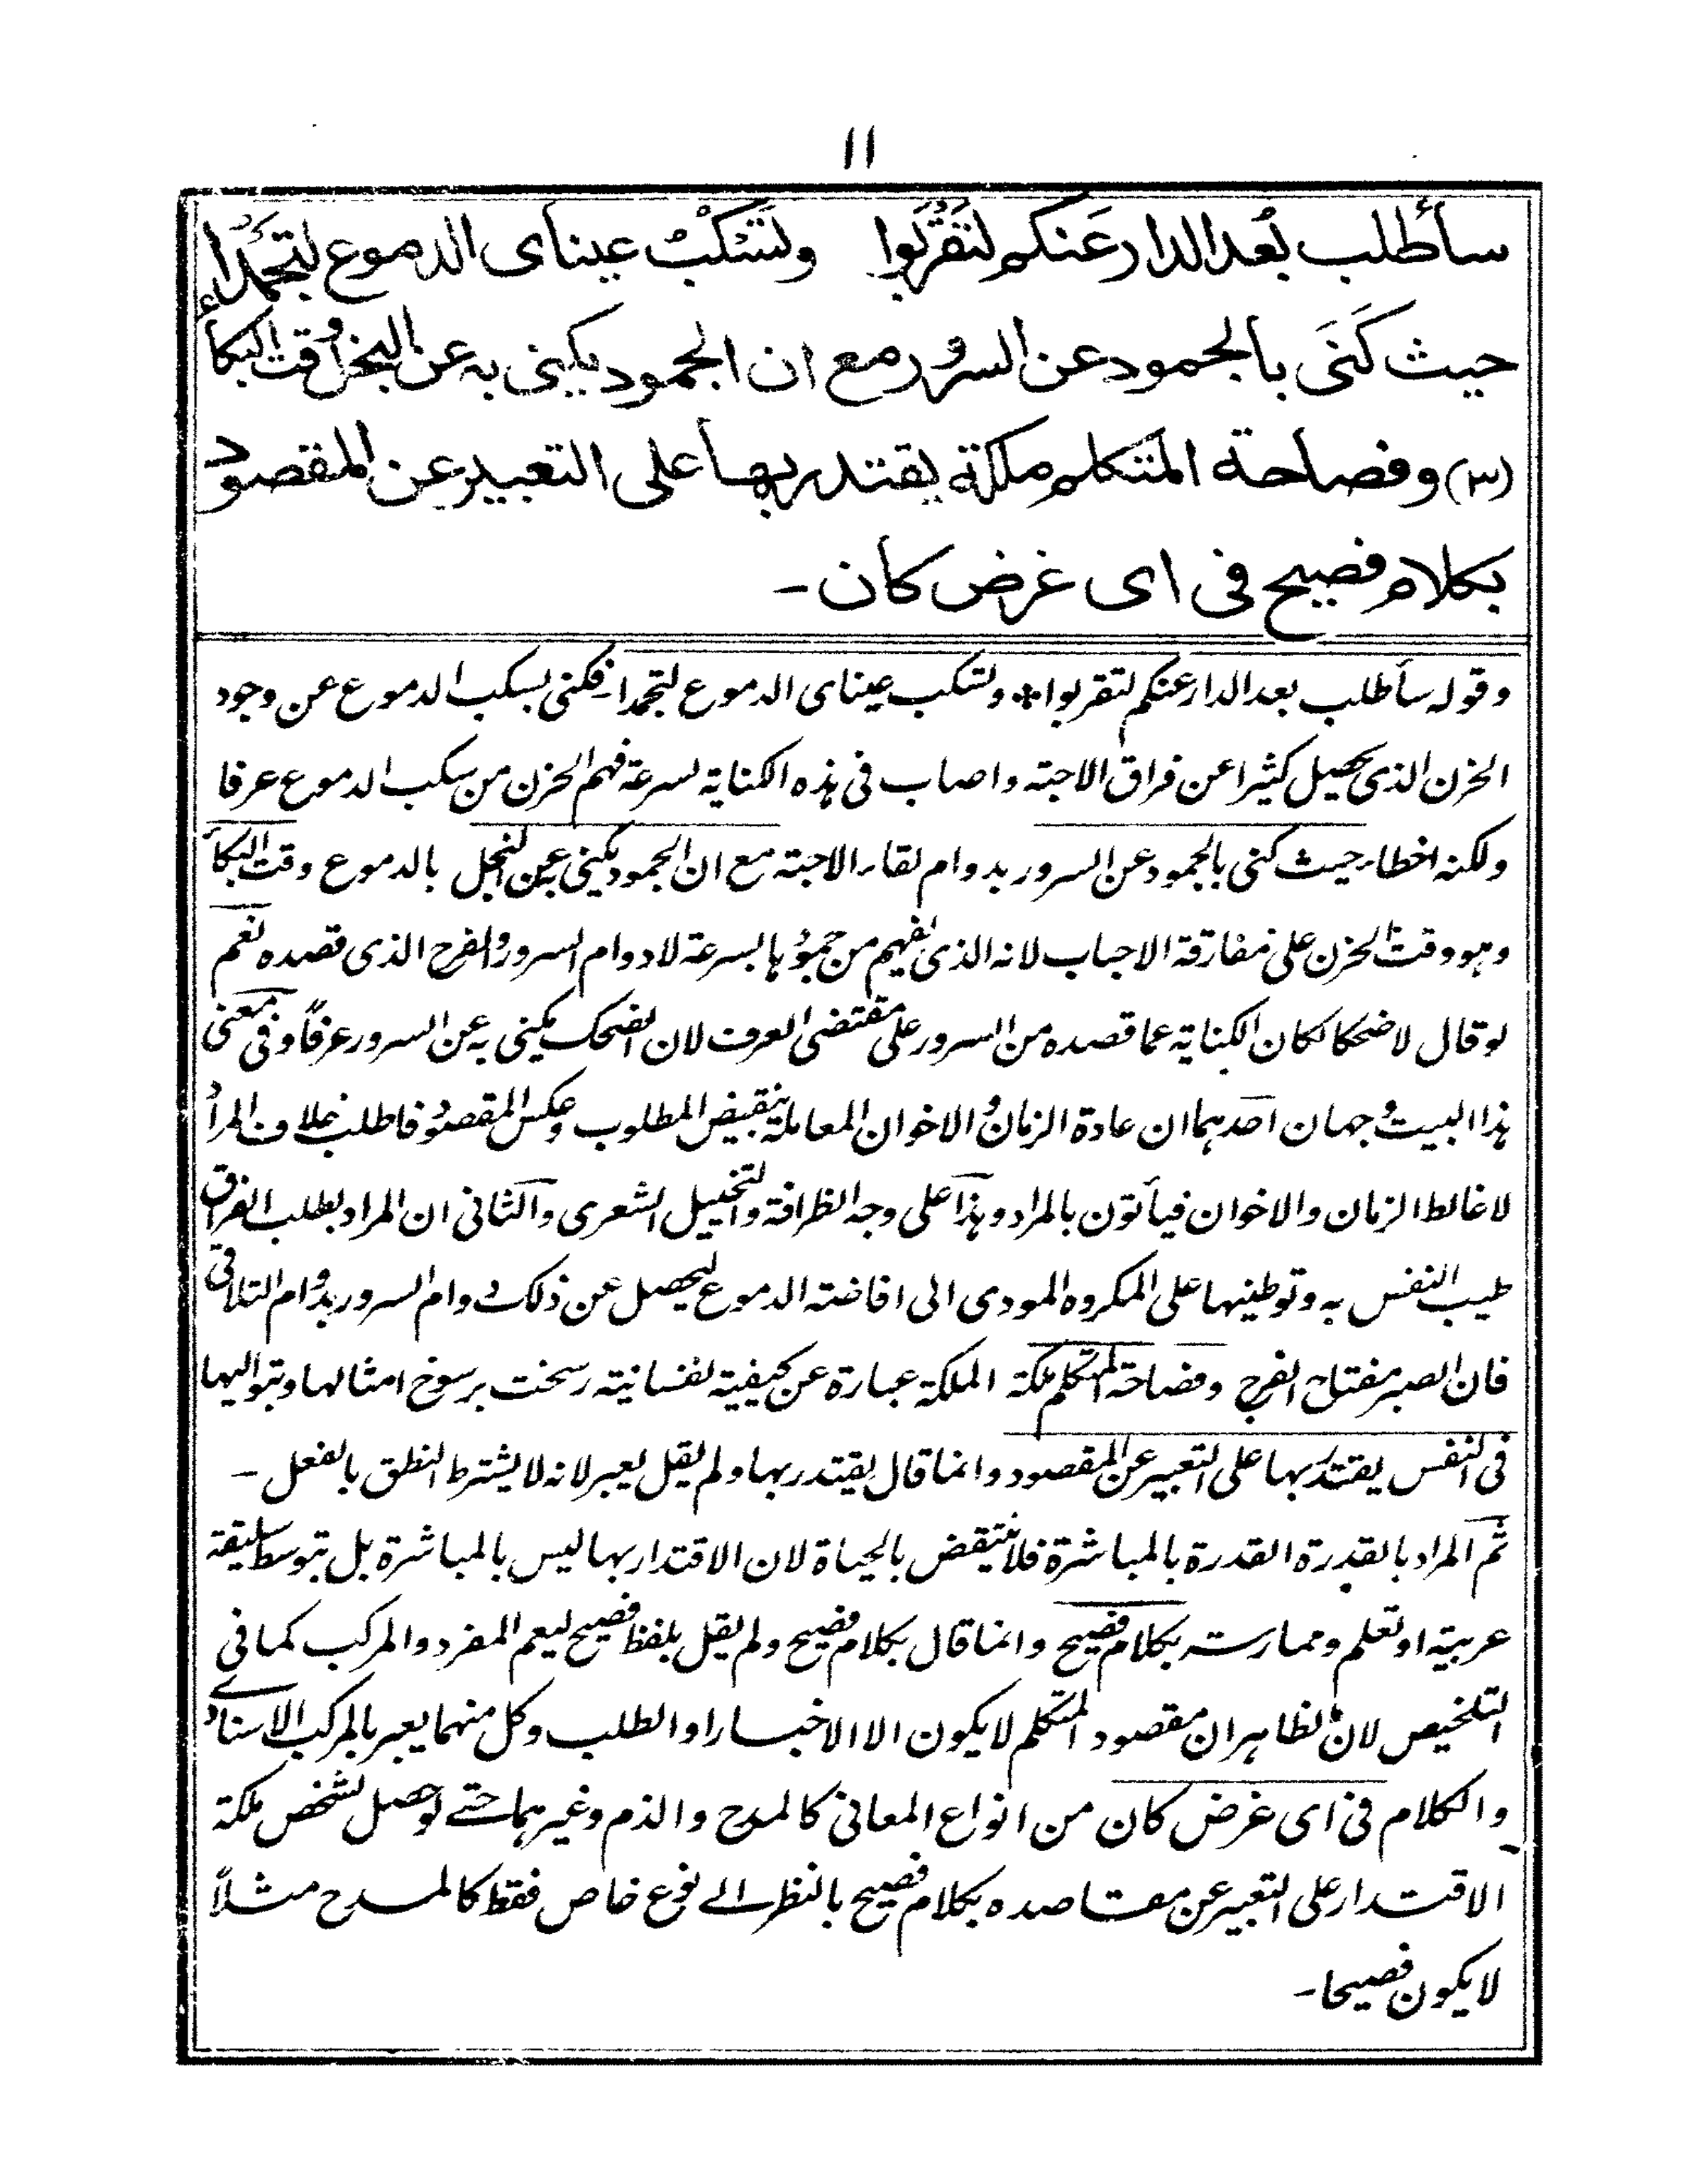 ۱۱
سأطلب بُعد الدار عَنكم لتَقْرَبُوا ولتَسْكُبُ عيناى الدموع لتجمُدَا
حيث كَنَى بالجمود عن السرور مع ان الجمود يكنى به عن البخل وقت البكاء
(۳) وفصاحة المتكلم ملكة يقتدر بها على التعبير عن المقصود
بكلام فصيح فى اى غرض كان -
وقوله سأطلب بعد الدار عنكم لتقربوا * ولتسكب عيناى الدموع لتجمدا - فكنى بسكب الدموع عن وجود
الحزن الذى يحصل كثيرا عن فراق الاحبته واصاب فى هذه الكناية لسرعة فهم الحزن من سكب الدموع عرفا
ولكنه اخطاء حيث كنى بالجمود عن السرور بدوام لقاء الاحبته مع ان الجمود يكنى به عن البخل بالدموع وقت البكاء
وهو وقت الحزن على مفارقة الاحباب لانه الذى يفهم من جمودها بسرعة لا دوام السرور والفرح الذى قصده نعم
لو قال لاضحكا لكان الكناية عما قصده من السرور على مقتضى العرف لان الضحك يكنى به عن السرور عرفاً وفى معنى
هذا البيت وجهان احدهما ان عادة الزمان والاخوان المعاملة بنقيض المطلوب وعكس المقصود فاطلب خلاف المراد
لاغالط الزمان والاخوان فيأتون بالمراد وهذا على وجه الظرافة والتخييل الشعرى والثانى ان المراد بطلب الفراق
طيب النفس به وتوطينها على المكروه المودى الى افاضته الدموع ليحصل عن ذلك دوام السرور بدوام التلاقى
فان الصبر مفتاح الفرج وفصاحة المتكلم ملكة الملكة عبارة عن كيفية نفسانيته رسخت برسوخ امثالها وتواليها
فى النفس يقتدر بها على التعبير عن المقصود وانما قال يقتدر بها ولم يقل يعبر لانه لا يشترط النطق بالفعل -
ثم المراد بالقدرة القدرة بالمباشرة فلا ينتقض بالحياة لان الاقتدار بها ليس بالمباشرة بل بتوسط سليقة
عربية او تعلم وممارسته بكلام فصيح وانما قال بكلام فصيح ولم يقل بلفظ فصيح ليعم المفرد والمركب كما فى
التلخيص لان الظاهر ان مقصود المتكلم لا يكون الا الاخبار او الطلب وكل منهما يعبر بالمركب الاسنادے
والكلام فى اى غرض كان من انواع المعانى كالمدح والذم وغيرهما حتے لو حصل لشخص ملكة
الاقتدار على التعبير عن مقاصده بكلام فصيح بالنظر الے نوع خاص فقط كالمدح مثلاً
لا يكون فصيحا -